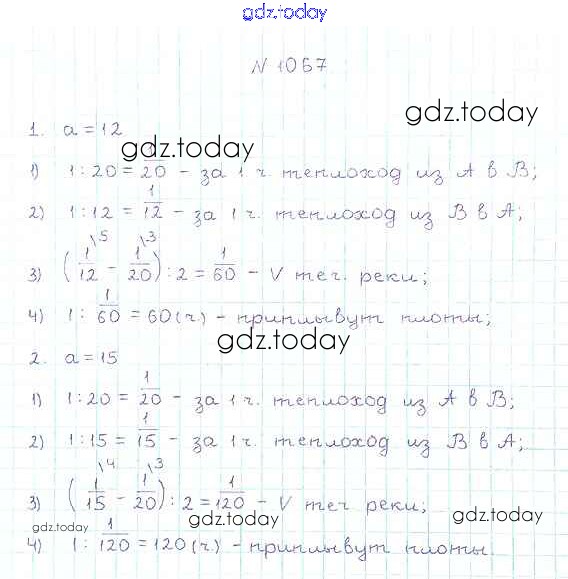 gdz.today
N 1067
gdz.today
1. a = 12
gdz.today
1) 1 : 20 = 1/20 - за 1 ч. теплоход из А в В;
2) 1 : 12 = 1/12 - за 1 ч. теплоход из В в А;
3) (1/12 \5 - 1/20 \3) : 2 = 1/60 - V теч. реки;
4) 1 : 1/60 = 60 (ч.) - приплывут плоты;
gdz.today
2. a = 15
1) 1 : 20 = 1/20 - за 1 ч. теплоход из А в В;
2) 1 : 15 = 1/15 - за 1 ч. теплоход из В в А;
3) (1/15 \4 - 1/20 \3) : 2 = 1/120 - V теч реки;
gdz.today gdz.today gdz.today
4) 1 : 1/120 = 120 (ч.) - приплывут плоты.